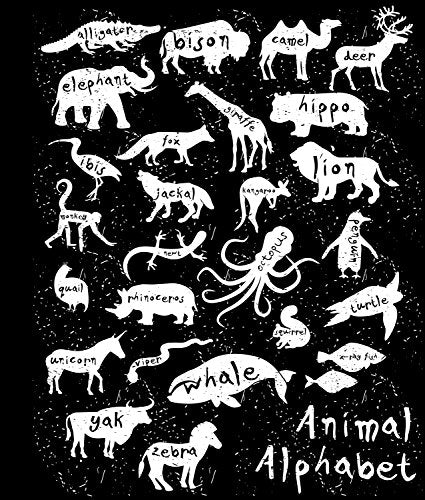 alligator
bison
camel
deer
elephant
fox
giraffe
hippo
ibis
jackal
kangaroo
lion
monkey
newt
octopus
penguin
quail
rhinoceros
squirrel
turtle
unicorn
viper
whale
x-ray fish
yak
zebra
Animal
Alphabet